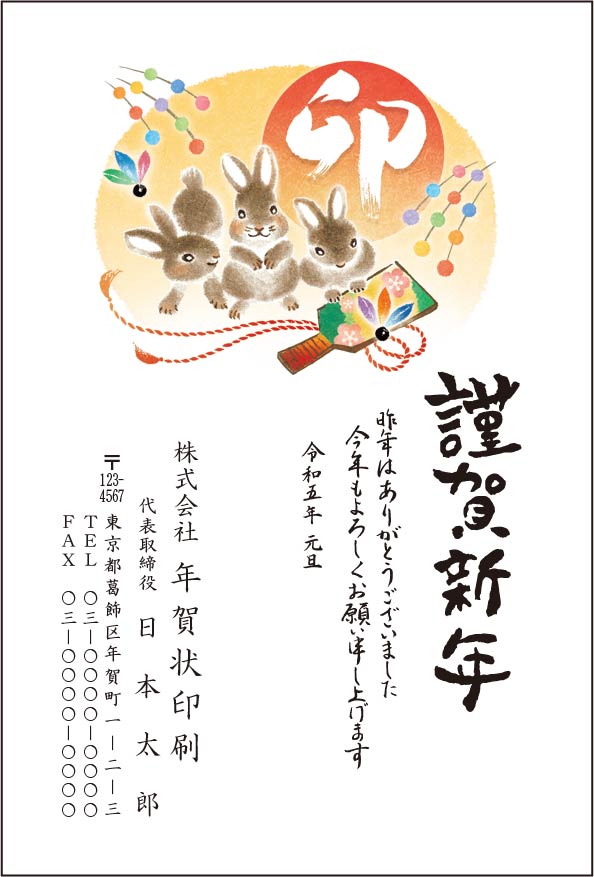 卯
謹賀新年
昨年はありがとうございました
今年もよろしくお願い申し上げます
令和五年 元旦
株式会社 年賀状印刷
代表取締役 日本太郎
〒123-4567 東京都葛飾区年賀町一ー二ー三
TEL 〇三ー〇〇〇〇ー〇〇〇〇
FAX 〇三ー〇〇〇〇ー〇〇〇〇